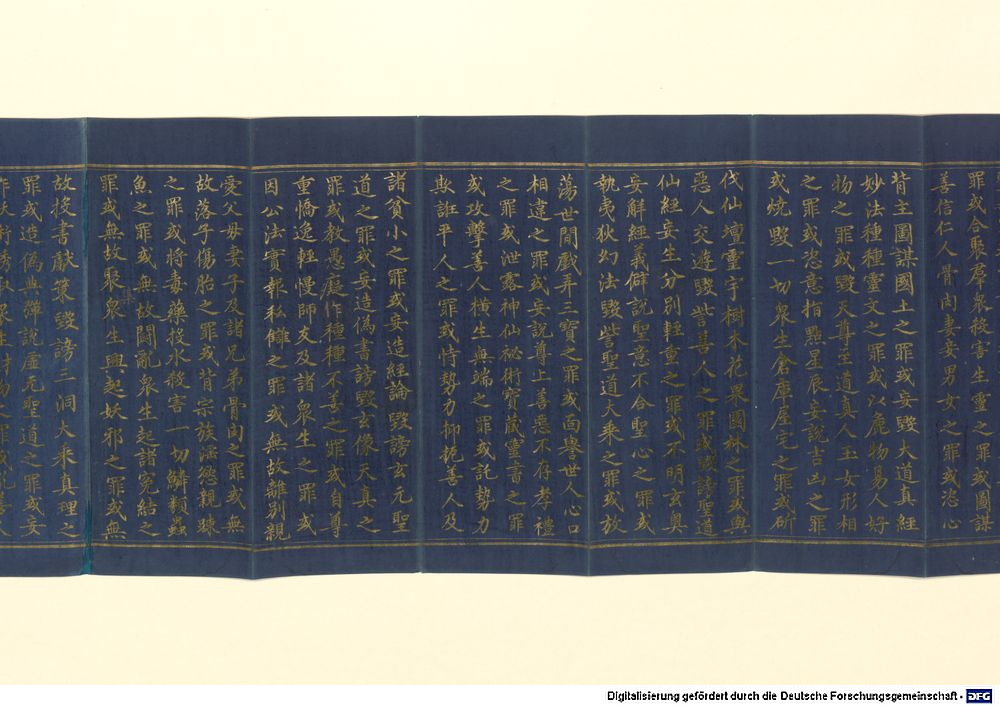 罪或合聚羣衆殺害生靈之罪或國謀
善信仁人骨肉妻妾男女之罪或恣心
背主圖謀國土之罪或妄毀大道真經
妙法種種靈文之罪或以麄物易人好
物之罪或毀天尊至道真人玉女形相
之罪或恣意指㸃星辰妄說吉凶之罪
或燒毀一切衆生倉庫屋宅之罪或斫
伐仙壇靈宇樹木花果園林之罪或與
惡人交遊毀訾善人之罪或毀謗聖道
仙經妄生分別輕重之罪或不明玄奧
妄解經義僻說聖意不合聖心之罪或
執夷狄幻法毀訾聖道大乘之罪或放
蕩世間戲弄三寶之罪或面譽世人心口
相違之罪或妄說尊上善惡不存孝禮
之罪或泄露神仙祕術寶藏靈書之罪
或攻擊善人橫生無端之罪或託勢力
欺誑平人之罪或恃勢力抑扼善人及
諸貧小之罪或妄造經論毀謗玄元聖
道之罪或妄造偽書謗毀玄像天真之
罪或教愚癡作種種不善之罪或自尊
重憍逸輕慢師友及諸衆生之罪或
因公法實報私讎之罪或無故離別親
愛父母妻子及諸兄弟骨肉之罪或無
故落子傷胎之罪或背宗族滛慾親踈
之罪或將毒藥投水殺害一切鱗類蟲
魚之罪或無故鬬亂衆生起諸冤結之
罪或無故聚衆生興起妖邪之罪或無
故投書獻策毀謗三洞大乘真理之
罪或造偽典釋說虛无聖道之罪或妄
Digitalisierung gefördert durch die Deutsche Forschungsgemeinschaft - DFG